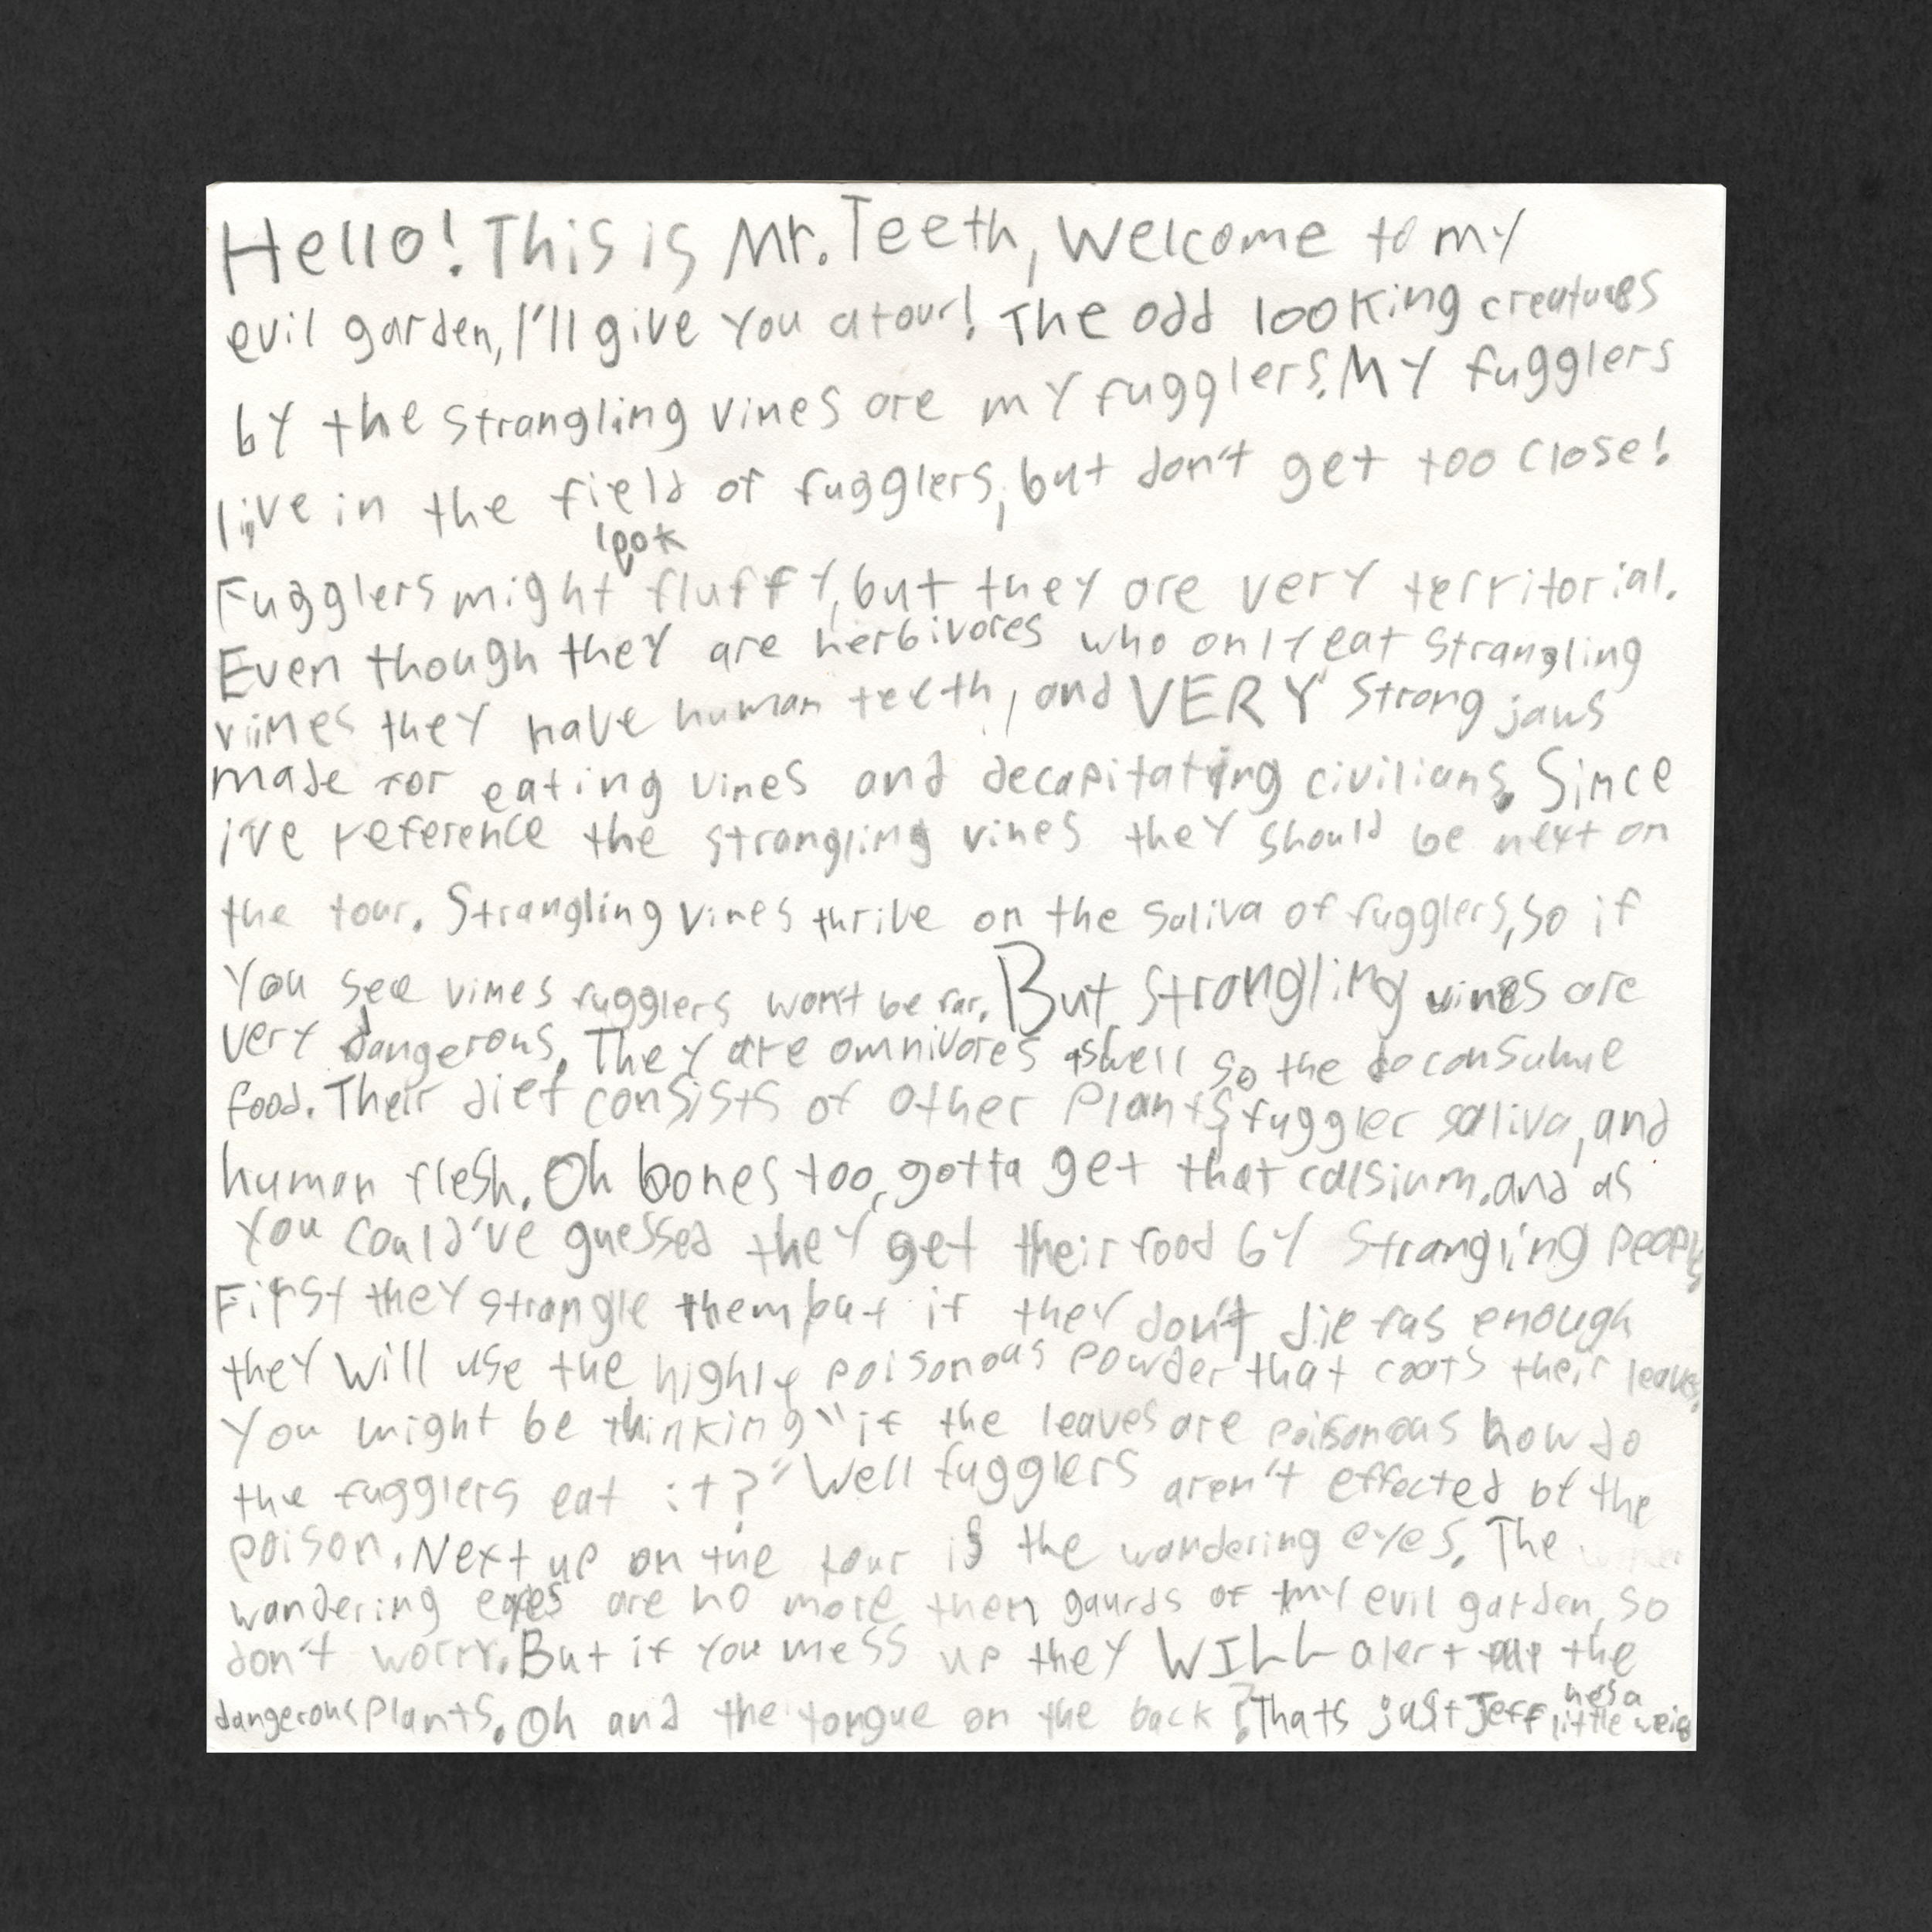 Hello! This is Mr. Teeth, Welcome to my
evil garden, I'll give you a tour! The odd looking creatures
by the strangling vines are my fugglers. My fugglers
live in the field of fugglers, but don't get too close!
look
Fugglers might fluffy, but they are very territorial.
Even though they are herbivores who only eat strangling
vines they have human teeth, and VERY strong jaws
made for eating vines and decapitating civilians. Since
i've reference the strangling vines they should be next on
the tour. Strangling vines thrive on the saliva of fugglers, so if
you see vines fugglers won't be far. But strangling vines are
very dangerous. They are omnivores aswell so the do consume
food. Their diet consists of other plants, fuggler saliva, and
human flesh. Oh bones too, gotta get that calsium. and as
you could've guessed they get their food by strangling people
First they strangle them but if they don't die fas enough
they will use the highly poisonous powder that coats their leaves.
You might be thinking "if the leaves are poisonous how do
the fugglers eat it?" Well fugglers aren't effected of the
poison. Next up on the tour is the wandering eyes. The
wandering eyes are no more then gaurds of my evil garden, so
don't worry. But if you mess up they WILL alert the
dangerous plants. Oh and the tongue on the back? Thats just Jeff hes a
little